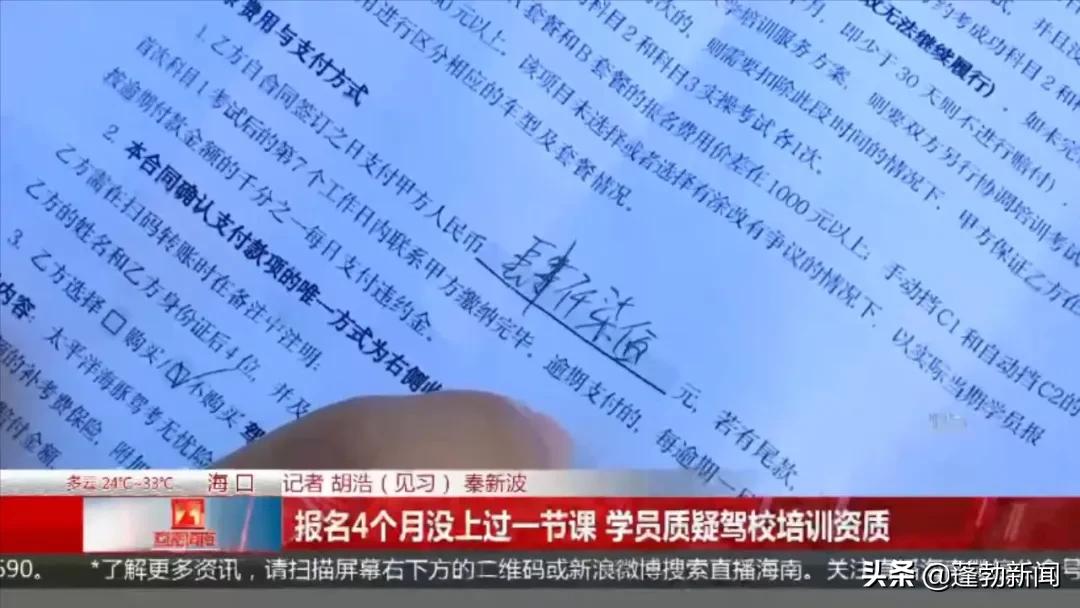 并且没
约考成功科目2和科
效无法继续履行)，如未完
月，即少于30天则不进行赔付)，
学培训服务方案，则要双方另行协调培训考试
次的，则需要扣除此段时间的情况下，甲方保证乙方在
科目2和科目3实操考试各1次。
套餐和B套餐的报名费用价差在1000元以上；手动挡C1和自动挡C2的
元以上，该项目未选择或者选择有涂改有争议的情况下，以实际当期学员报
用进行区分相应的车型及套餐情况。
费用与支付方式
1.乙方自合同签订之日支付甲方人民币肆仟柒佰元，若有尾款，
首次科目1考试后的第7个工作日内联系甲方缴纳完毕。逾期支付的，每逾期一
按逾期付款金额的千分之一每日支付违约金。
2.本合同确认支付款项的唯一方式为右侧收
乙方需在扫码转账时在备注中注明：
乙方的姓名和乙方身份证后4位，并及
3.乙方选择□购买/☑不购买 驾
内容：太平洋海豚驾考无忧险
的补考费保险，附加
赔付金额
多云 24℃~33℃ 海口 记者 胡浩（见习） 秦新波
报名4个月没上过一节课 学员质疑驾校培训资质
590。 *了解更多资讯，请扫描屏幕右下方的二维码或新浪微博搜索直播海南。关注
头条 @蓬勃新闻